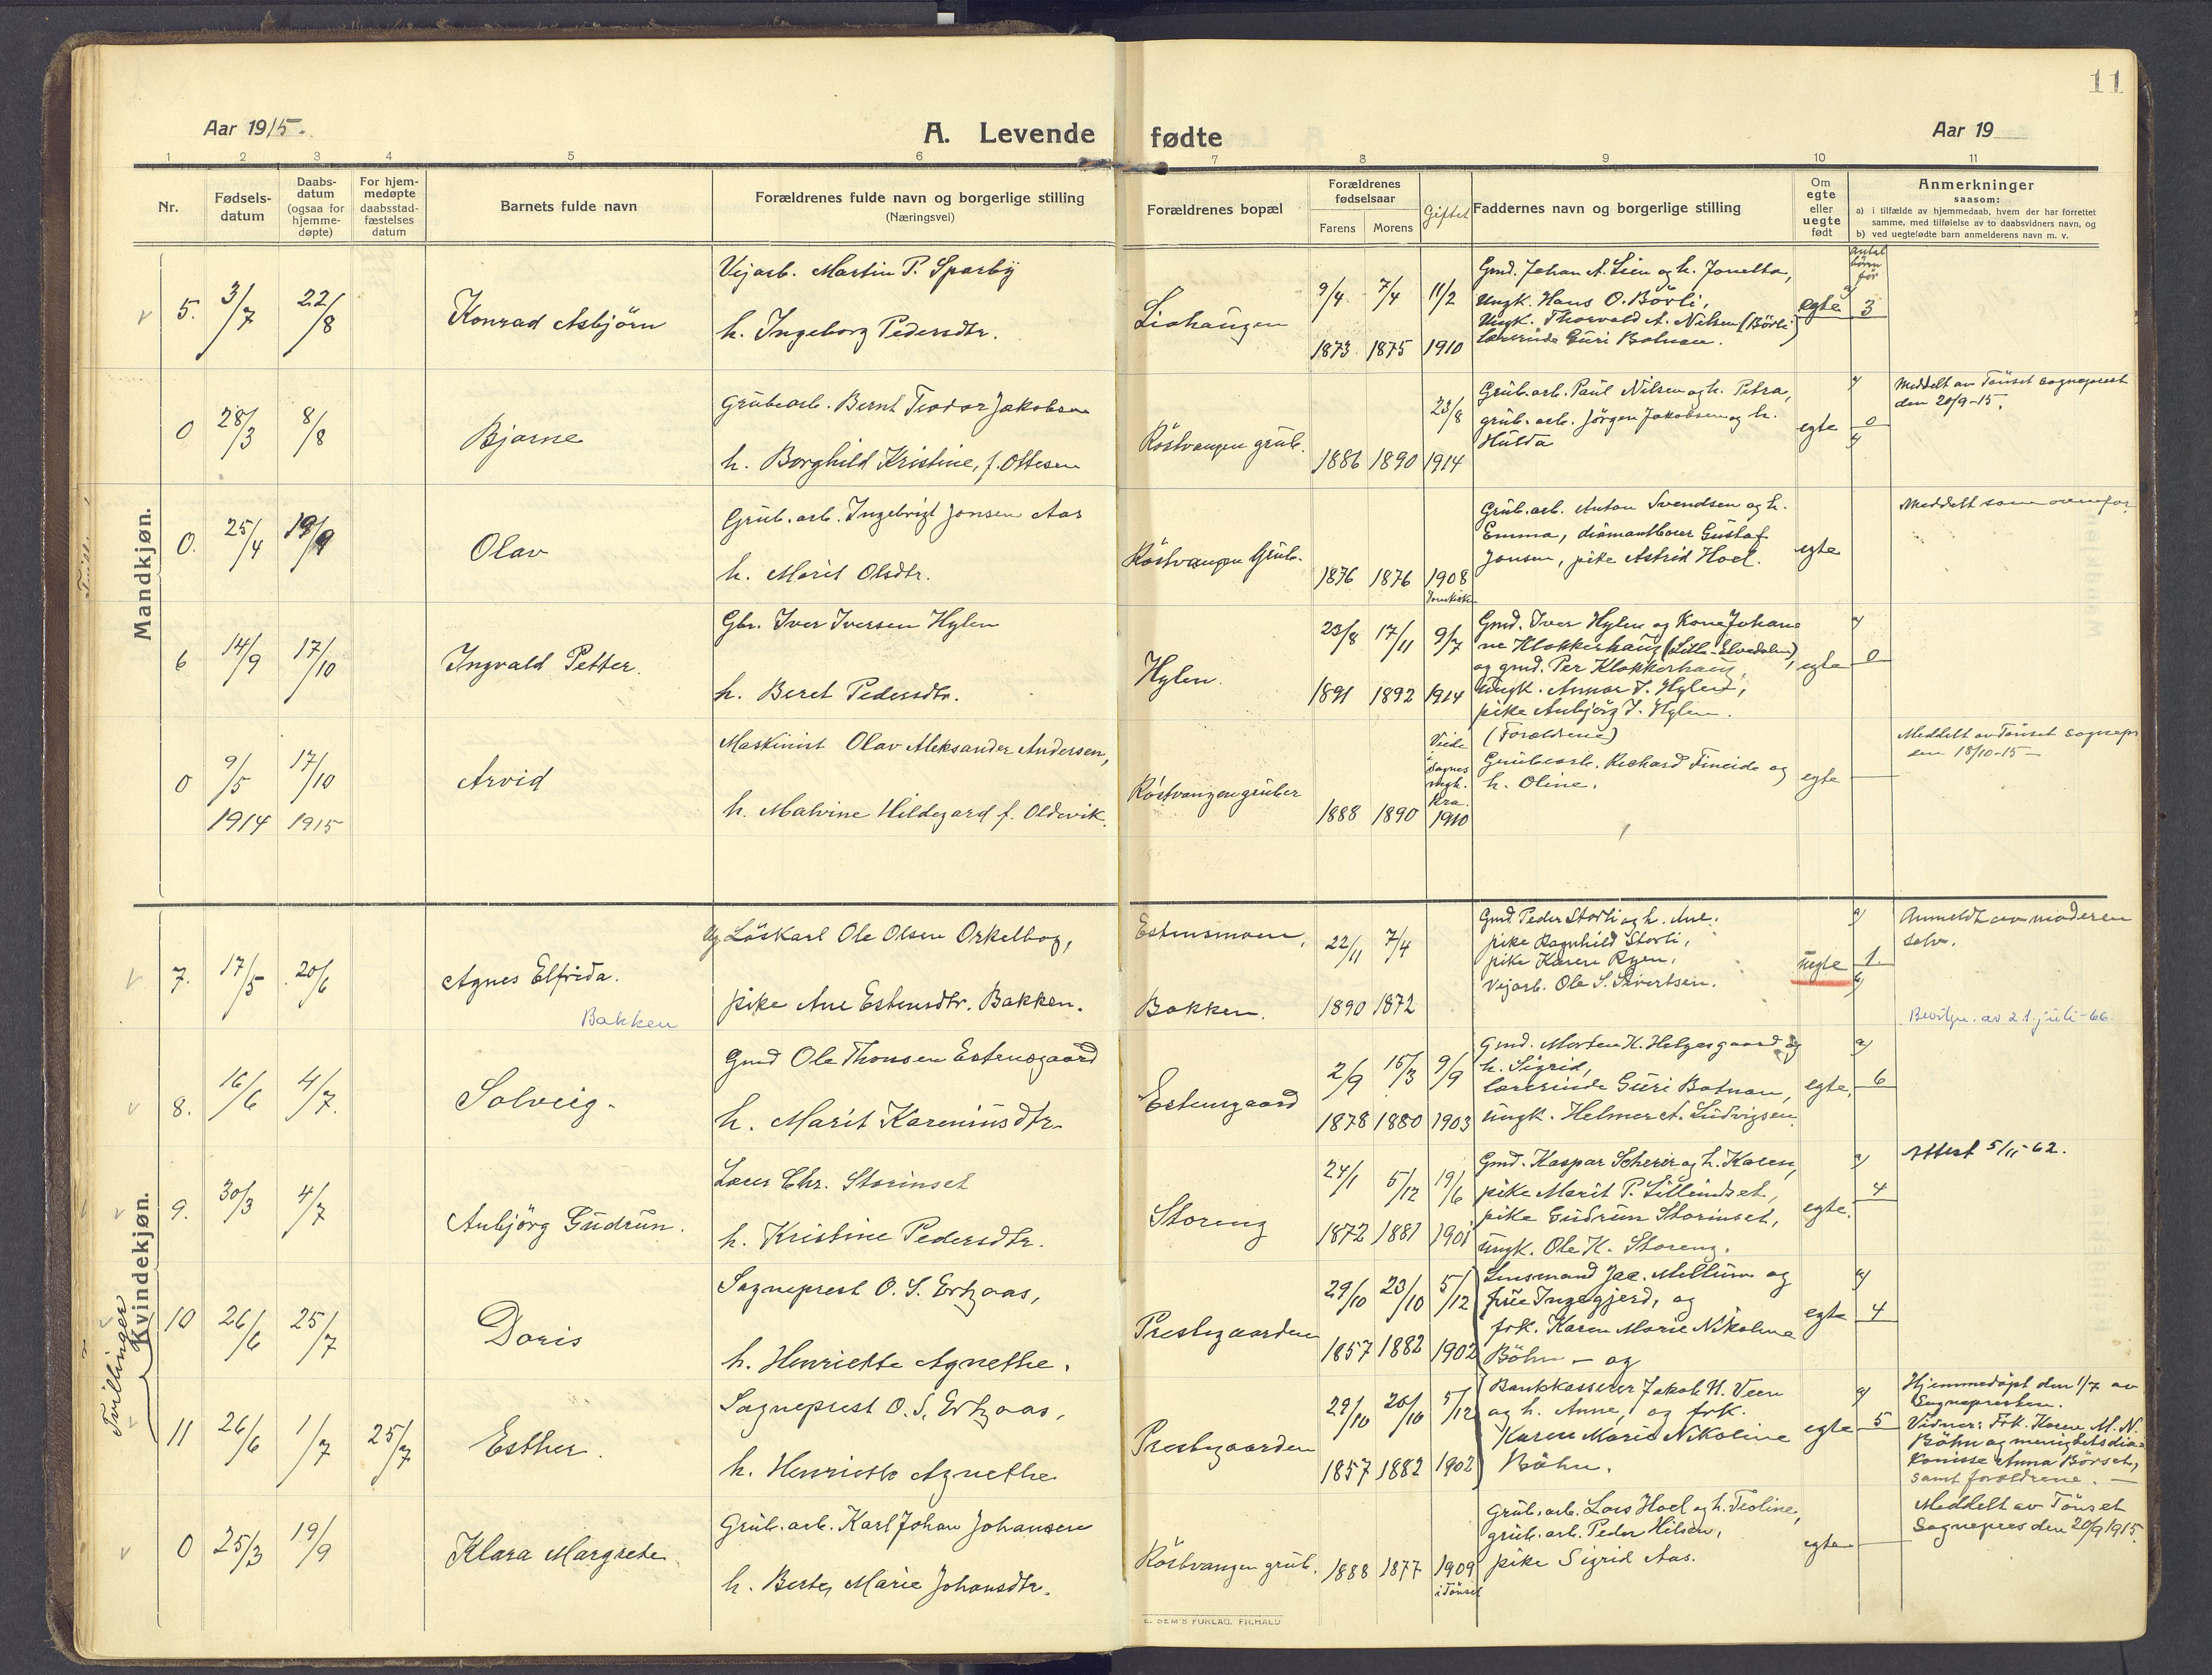 11
Aar 1915.
A. Levende fødte
Aar 19
1 2 3 4 5 6 7 8 9 10 11
Nr.
Fødsels-
datum
Daabs-
datum
(ogsaa for
hjemme-
døpte)
For hjem-
medøpte
daabsstad-
fæstelses
datum
Barnets fulde navn
Forældrenes fulde navn og borgerlige stilling
(Næringsvei)
Forældrenes bopæl
Forældrenes
fødselsaar
Farens Morens
Giftet
Faddernes navn og borgerlige stilling
Om
egte
eller
uegte
født
Anmerkninger
saasom:
a) i tilfælde av hjemmedaab, hvem der har forrettet
samme, med tilføielse av to daabsvidners navn, og
b) ved uegtefødte barn anmelderens navn m. v.
Antal
børn
før
Mandkjøn.
5. 3/7 22/8
Konrad Asbjörn
Vejarb. Martin P. Sparby
h. Ingeborg Pedersdtr.
Liahaugen
9/4 7/4 11/2
1873 1875 1910
Gmd. Johan A. Lien og h. Jonetta,
Ungk. Hans O. Börli,
Ungk. Thorvald A. Nilsen (Börli)
Lærerinde Guri Batnan.
egte
a) 3
0 28/3 8/8
Bjarne
Grubearb. Bernt Teodor Jakobsen
h. Borghild Kristine, f. Ottesen
Röstvangen grub.
23/8
1886 1890 1914
Grub.arb. Paul Nilsen og h. Petra,
grub. arb. Jörgen Jakobsen og h.
Hulda
egte
a) 0
Meddelt av Tönset sogneprest
den 20/9-15.
0. 25/4 19/9
Olav
Grub. arb. Ingebrigt Jonsen Aas
h. Marit Olsdtr.
Röstvangen Grub.
1876 1876 1908
Grub.arb. Anton Svendsen og h.
Emma, diamantborer Gustaf
Jonsen, pike Astrid Hoel.
egte
Meddelt som ovenfor
6 14/9 17/10
Ingvald Petter.
Gbr. Iver Iversen Hylen
h. Beret Pedersdtr.
Hylen.
23/8 17/11 9/7
1891 1892 1914
Gmd. Iver Hylen og Kone Johan-
ne Klokkerhaug (Lille-Elvedalen),
og gmd. Per Klokkerhaug,
Ungk. Annar I. Hylen,
pike Anbjørg I. Hylen.
egte
a) 0
0 9/5 17/10
1914 1915
Arvid
Maskinist Olav Aleksander Andersen,
h. Malvine Hildegard f. Oldervik.
Röstvangen gruber
Viede
Sagnes
Kra.
1888 1890 1910
(Forældrene)
Grubearb. Richard Fineide og
h. Oline.
egte
Meddelt av Tönset sognepr
den 18/10-15
Kvindekjøn.
7. 17/5 20/6
Agnes Elfrida.
Bakken
Ug. Löskarl Ole Olsen Orkelbog,
pike Ane Estensdtr. Bakken.
Estensmoen,
Bakken.
22/11 7/4
1890 1872
Gmd. Peder Storli og h. Ane.
pike Ragnhild Storli,
pike Karen Ryen,
Vejarb. Ole S. Sivertsen.
uegte
a) 1.
Anmeldt av moderen
selv.
Bevilgn. av 21. juli-66
8. 16/6 4/7.
Solveig.
Gmd Ole Thonsen Estensgaard
h. Marit Kareniusdtr.
Estensgaard
2/9 15/3 9/9
1878 1880 1903
Gmd. Morten K. Helgesgaard og
h. Sigrid,
lærerinde Guri Batnan,
ungk. Helmer A. Ludvigsen.
egte.
a) 6
9. 30/3 4/7
Anbjörg Gudrun.
Lars Chr. Storinset
h. Kristine Pedersdtr.
Storeng
24/1 5/12 19/6
1872 1881 1901
Gmd. Kaspar Scherir og h. Karen,
pike Marit P. Lilleindset,
pike Gudrun Storinset,
ungk. Ole K. Storeng.
egte.
a) 4
Attest 5/11-62.
Tvillinger
10 26/6 25/7
Doris
Sogneprest O. S. Erkaas,
h. Henriette Agnethe.
Prestegaarden
29/10 20/10 5/12
1857 1882 1902
Lensmand Jac. Mellum og
frue Ingegjerd, og
frk. Karen Marie Nikoline
Böhn - og
egte
a) 4
11 26/6 1/7 25/7
Esther.
Sogneprest O. S. Erkaas,
h. Henriette Agnethe
Prestegaarden
29/10 20/10 5/12
1857 1882 1902
Bankkasserer Jakob N. Veen
og h. Anne, og frk.
Karen Marie Nikoline
Böhn.
egte
a) 5
Hjemmedöpt den 1/7 av
Sognepresten.
Vidner: Frk. Karen M. N.
Böhn og menighetsdia-
konisse Anna Börset,
samt forældrene.
0 25/3 19/9
Klara Margrete
Grub. arb. Karl Johan Johansen
h. Berte Marie Johansdtr.
Röstvangen grub.
1888 1877 1909
i Tönset
Grub. arb. Lars Hoel og h. Teoline,
grub. arb. Peder Nilsen,
pike Sigrid Aas.
egte
Meddelt av Tönset
Sognepres den 20/9 1915.
E. SEM'S FORLAG, FR.HALD